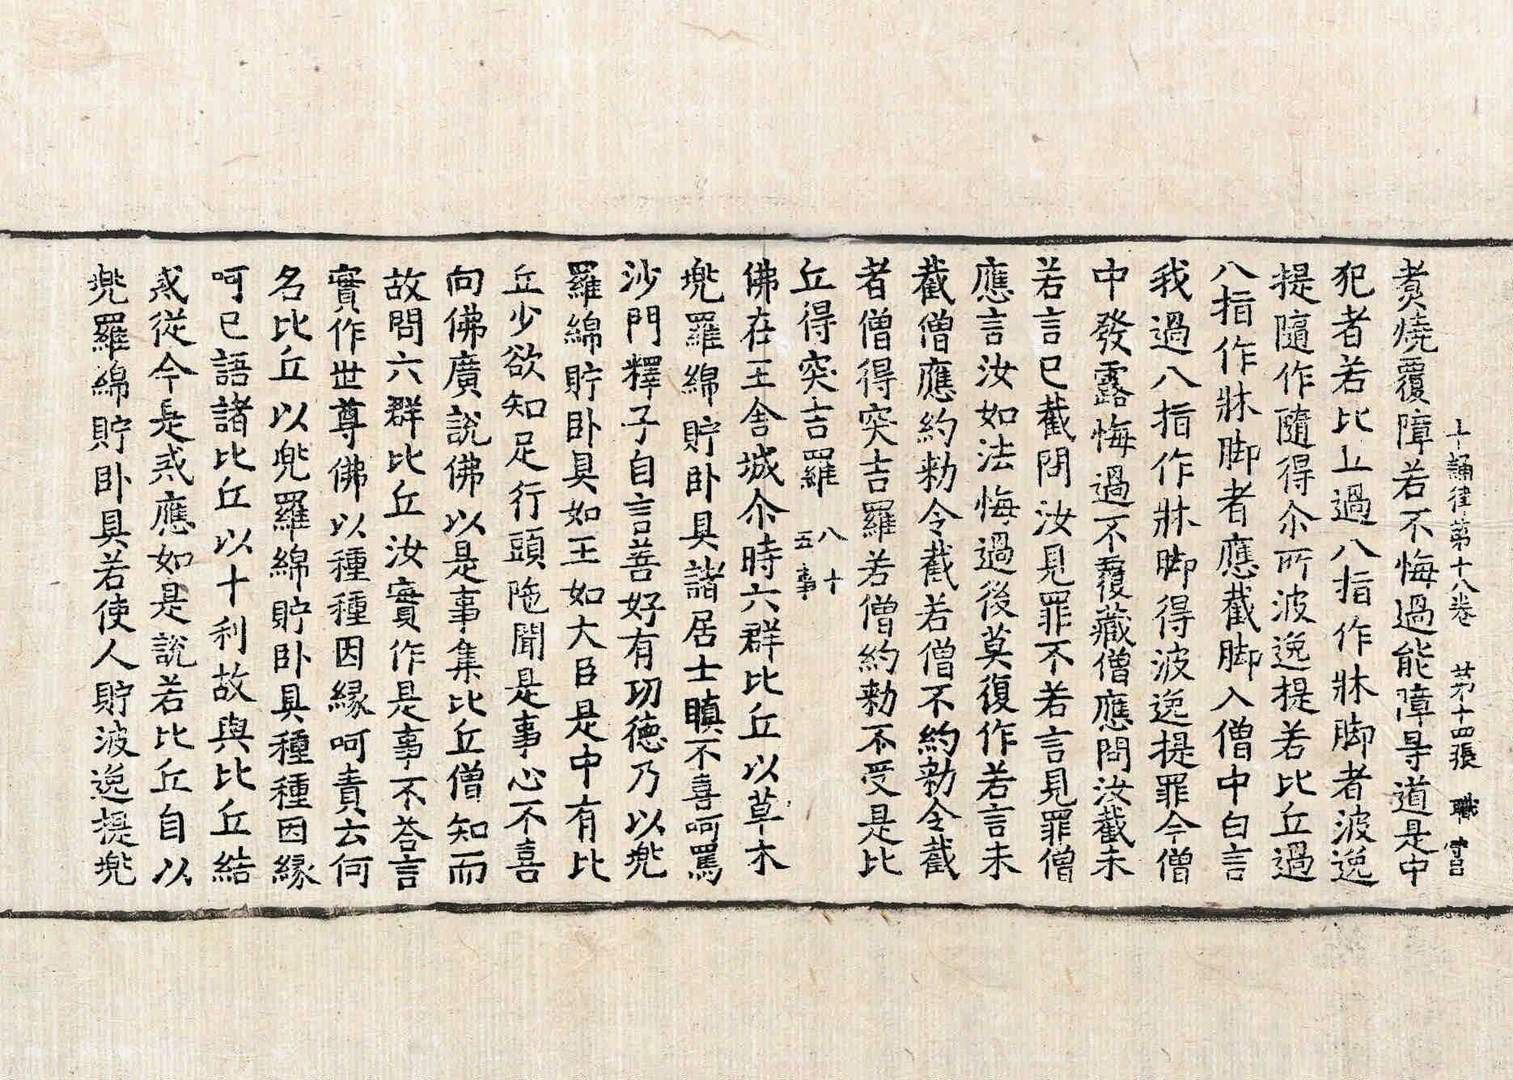 十誦律第十八卷　第十四張　職
煑燒覆障若不悔過能障㝵道是中
犯者若比丘過八指作牀脚者波逸
提隨作隨得尒所波逸提若比丘過
八指作牀脚者應截脚入僧中白言
我過八指作牀脚得波逸提罪今僧
中發露悔過不覆藏僧應問汝截未
若言已截問汝見罪不若言見罪僧
應言汝如法悔過後莫復作若言未
截僧應約勑令截若僧不約勑令截
者僧得突吉羅若僧約勑不受是比
丘得突吉羅 八十五事
佛在王舍城尒時六群比丘以草木
兠羅綿貯卧具諸居士瞋不喜呵罵
沙門釋子自言善好有功德乃以兠
羅綿貯卧具如王如大臣是中有比
丘少欲知足行頭陁聞是事心不喜
向佛廣說佛以是事集比丘僧知而
故問六群比丘汝實作是事不荅言
實作世尊佛以種種因緣呵責云何
名比丘以兠羅綿貯卧具種種因緣
呵已語諸比丘以十利故與比丘結
戒從今是戒應如是說若比丘自以
兠羅綿貯卧具若使人貯波逸提兠